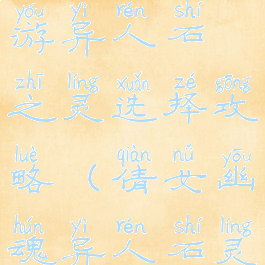 yóu yì rén shí
游异人石
zhī líng xuǎn zé gōng
之灵选择攻
lüè qiàn nǚ yōu
略（倩女幽
hún yì rén shí líng
魂异人石灵